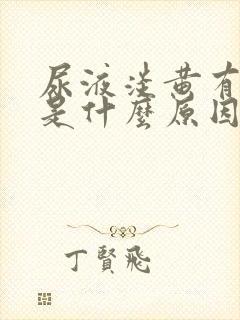 尿液淡黄有
是什麼原因
丁賢飛